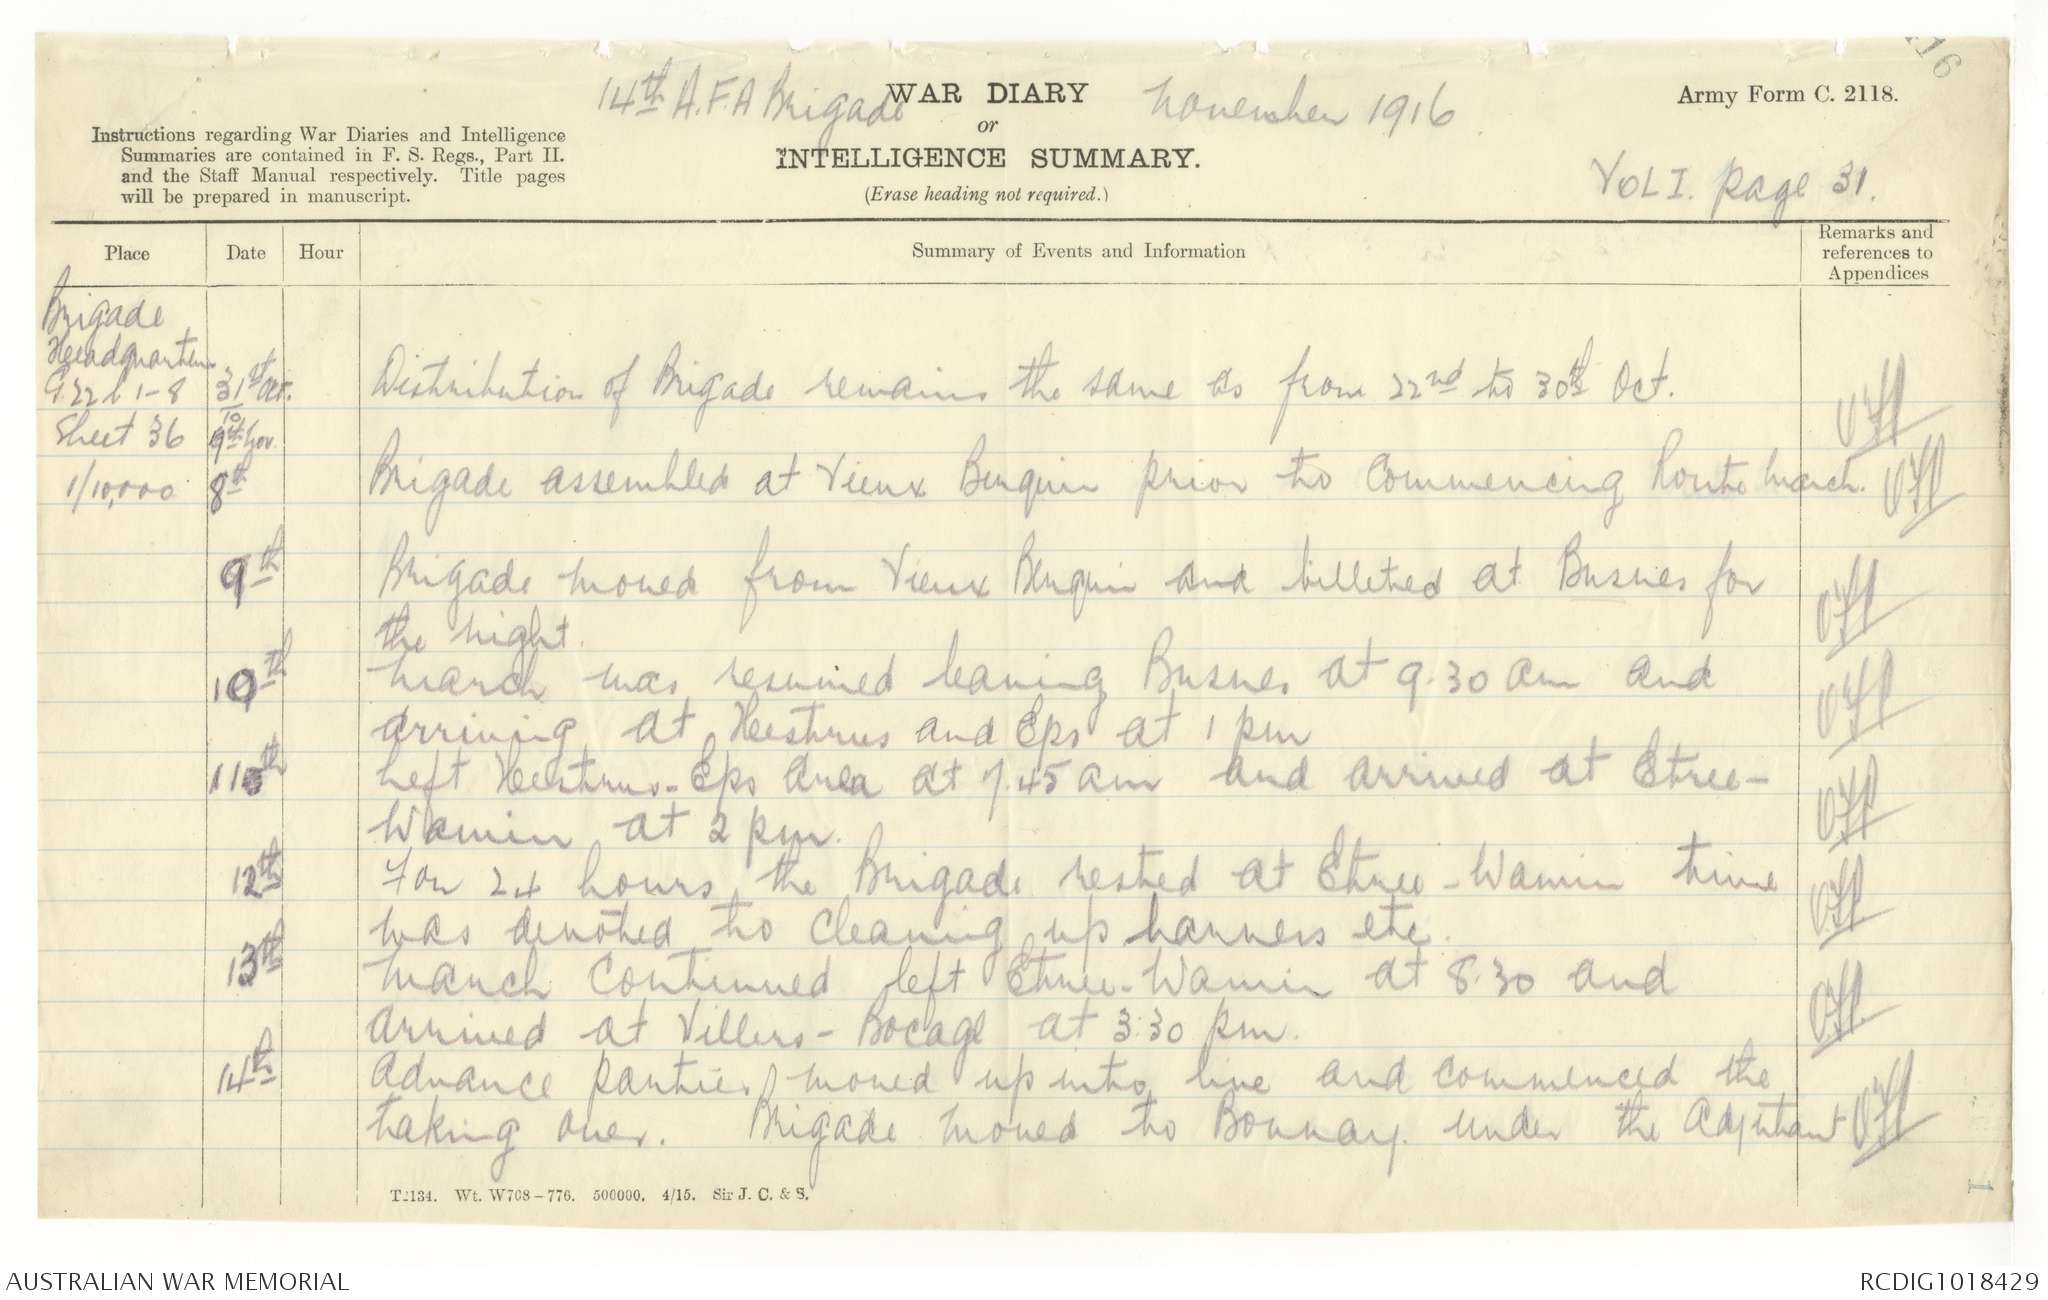 116
14th A.F.A Brigade WAR DIARY November 1916 Army Form C. 2118.
or
INTELLIGENCE SUMMARY.
(Erase heading not required.)
Instructions regarding War Diaries and Intelligence
Summaries are contained in F. S. Regs., Part II.
and the Staff Manual respectively. Title pages
will be prepared in manuscript.
VOL I. page 31.
Place Date Hour Summary of Events and Information Remarks and
references to
Appendices
Brigade
Headquarters
G.22 b 1-8 31st Oct. Distribution of Brigade remains the same as from 22nd to 30th Oct.
Sheet 36 to
9th Nov.
1/10,000 8th Brigade assembled at Vieux Berquin prior to commencing Route March.
9th Brigade moved from Vieux Berquin and billeted at Busnes for
the night.
10th March was resumed leaving Busnes at 9.30 am and
arriving at Heestrus and Eps at 1 pm
11th Left Heestrus-Eps area at 7.45 am and arrived at Etree-
Wamin at 2 pm.
12th For 24 hours the Brigade rested at Etree-Wamin time
was devoted to cleaning up harness etc.
13th March continued left Etree-Wamin at 8.30 and
arrived at Villers-Bocage at 3.30 pm.
14th Advance parties moved up into line and commenced the
taking over. Brigade moved to Bonnay under the Adjutant
T2134. Wt. W708-776. 500000. 4/15. Sir J. C. & S.
1
AUSTRALIAN WAR MEMORIAL RCDIG1018429